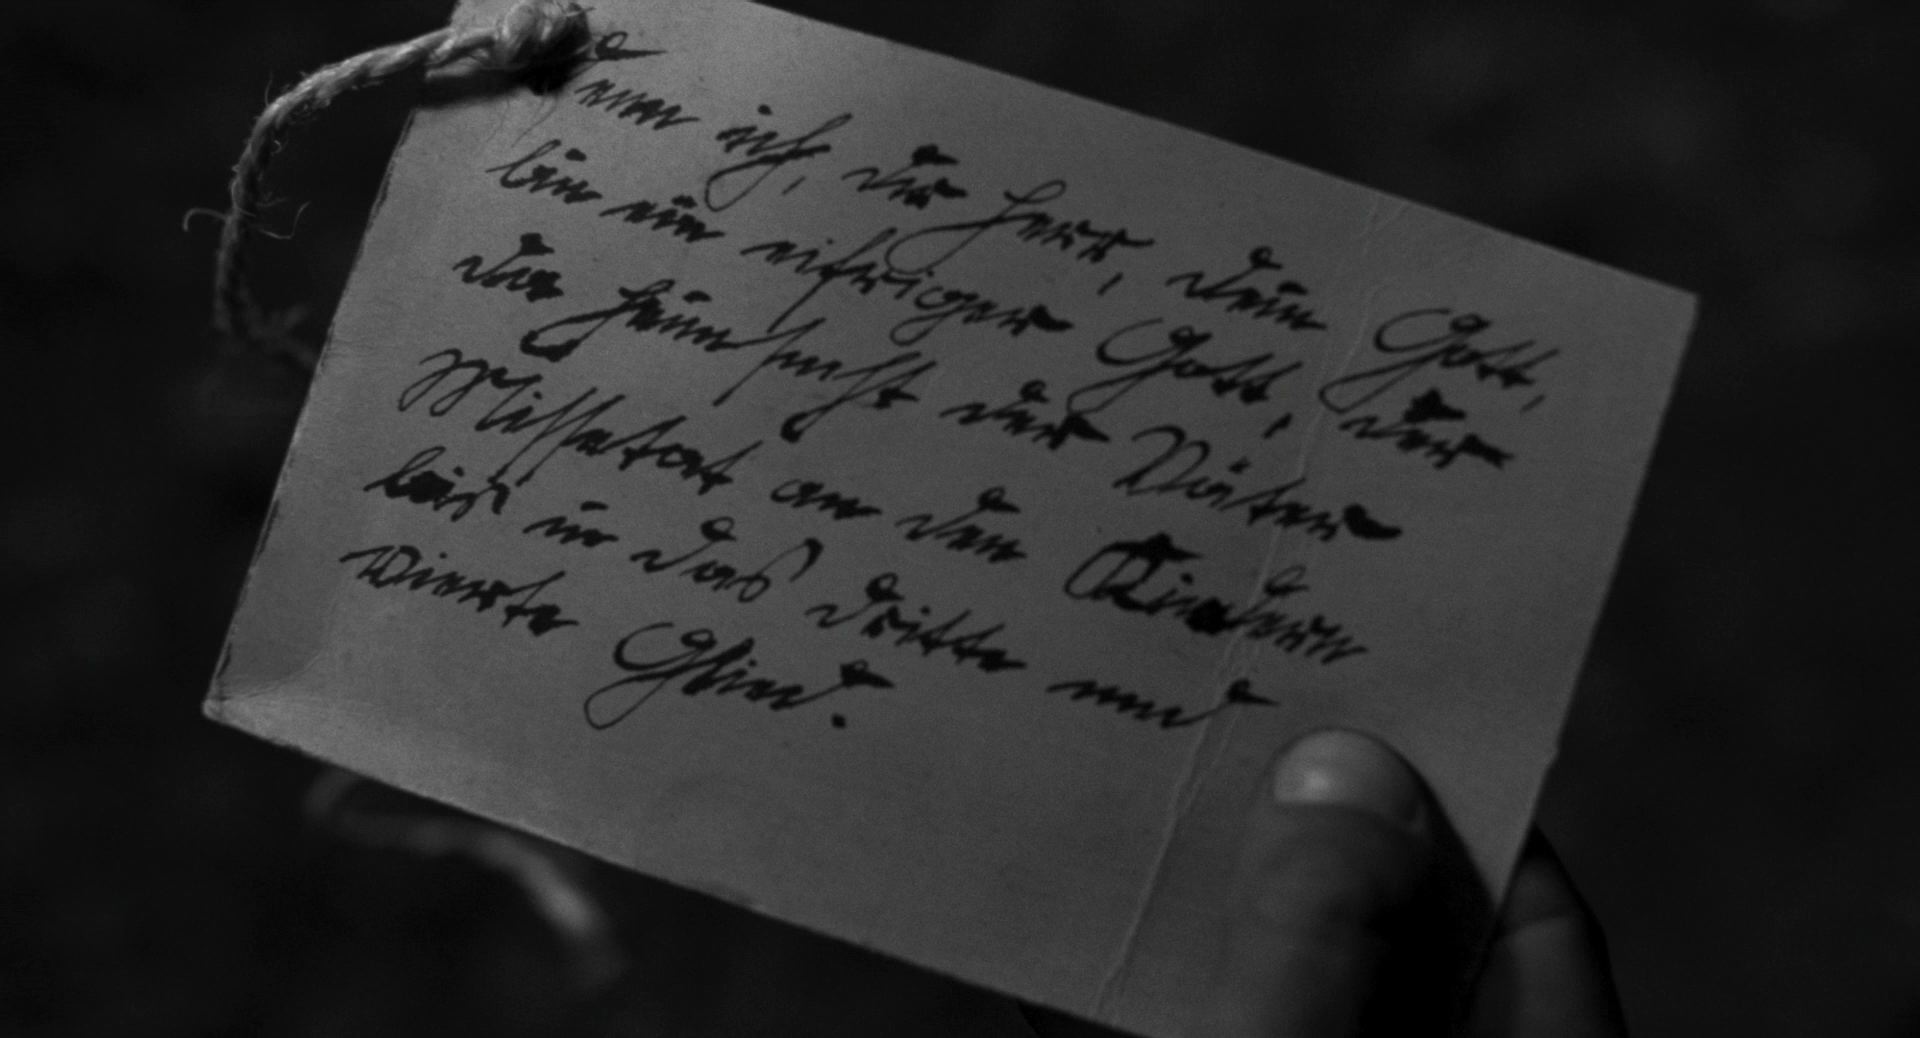 Denn ich, der Herr, dein Gott,
bin ein eifriger Gott, der
da heimsucht der Väter
Missetat an den Kindern
bis in das dritte und
vierte Glied.